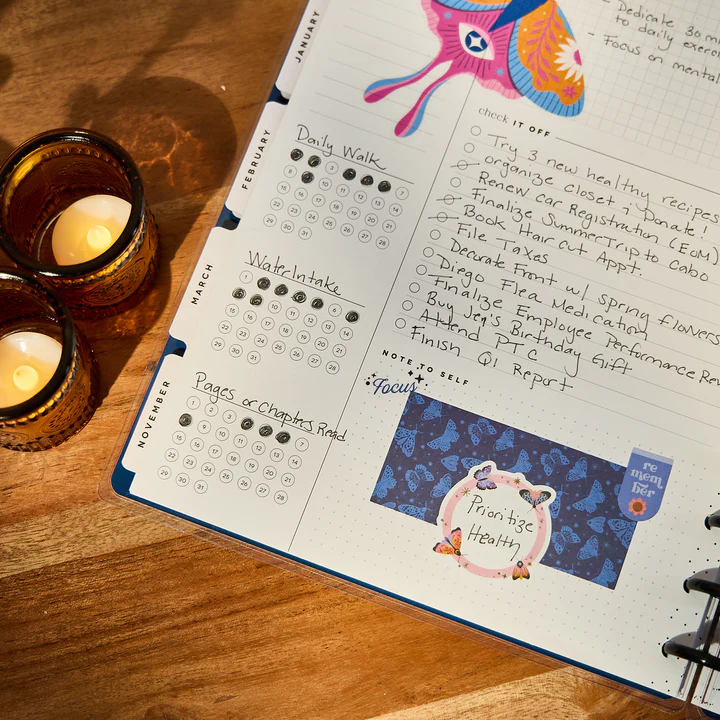 JANUARY
FEBRUARY
MARCH
NOVEMBER
- Dedicate 30 
to daily
- Focus on mental
Daily Walk
7
8 10 11 12 13 14
15 16 17 18 19 20 21
22 23 24 25 26 27 28
29 30 31
Water Intake
1 6
10 11 12 13 14
15 16 17 18 19 20 21
22 23 24 25 26 27 28
29 30 31
Pages or Chapters Read
1 2 3 4 7
9 10 14
15 16 17 18 19 20 21
22 23 24 25 26 27 28
29 30 31
check IT OFF
Try 3 new healthy recipes
organize closet & Donate!
Renew Car Registration (EoM)
Finalize Summer Trip to Cabo
Book Hair cut Appt.
File Taxes
Decorate Front w/ spring flowers
Diego Flea Medication
Finalize Employee Performance Rev
Buy Jen's Birthday Gift
Attend PTC
Finish Q1 Report
NOTE TO SELF
Focus
re
mem
ber
Prioritize
Health